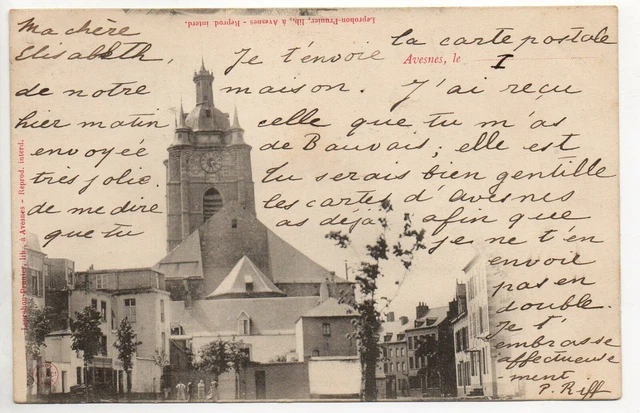 Leprohon-Prunier, lib. à Avesnes - Reprod. interd.
Ma chère
Elisabeth, Je t'envoie la carte postale
Avesnes, le I
de notre maison. J'ai reçu
hier matin celle que tu m'as
envoyée de Bauvais; elle est
très jolie. Tu serais bien gentille
de me dire les cartes d'Avesnes
que tu as déjà afin que
je ne t'en
envoie
pas en
double.
Je t'
embrasse
affectueuse
ment
P. Riff
Leprohon-Prunier, lib. à Avesnes - Reprod. interd.